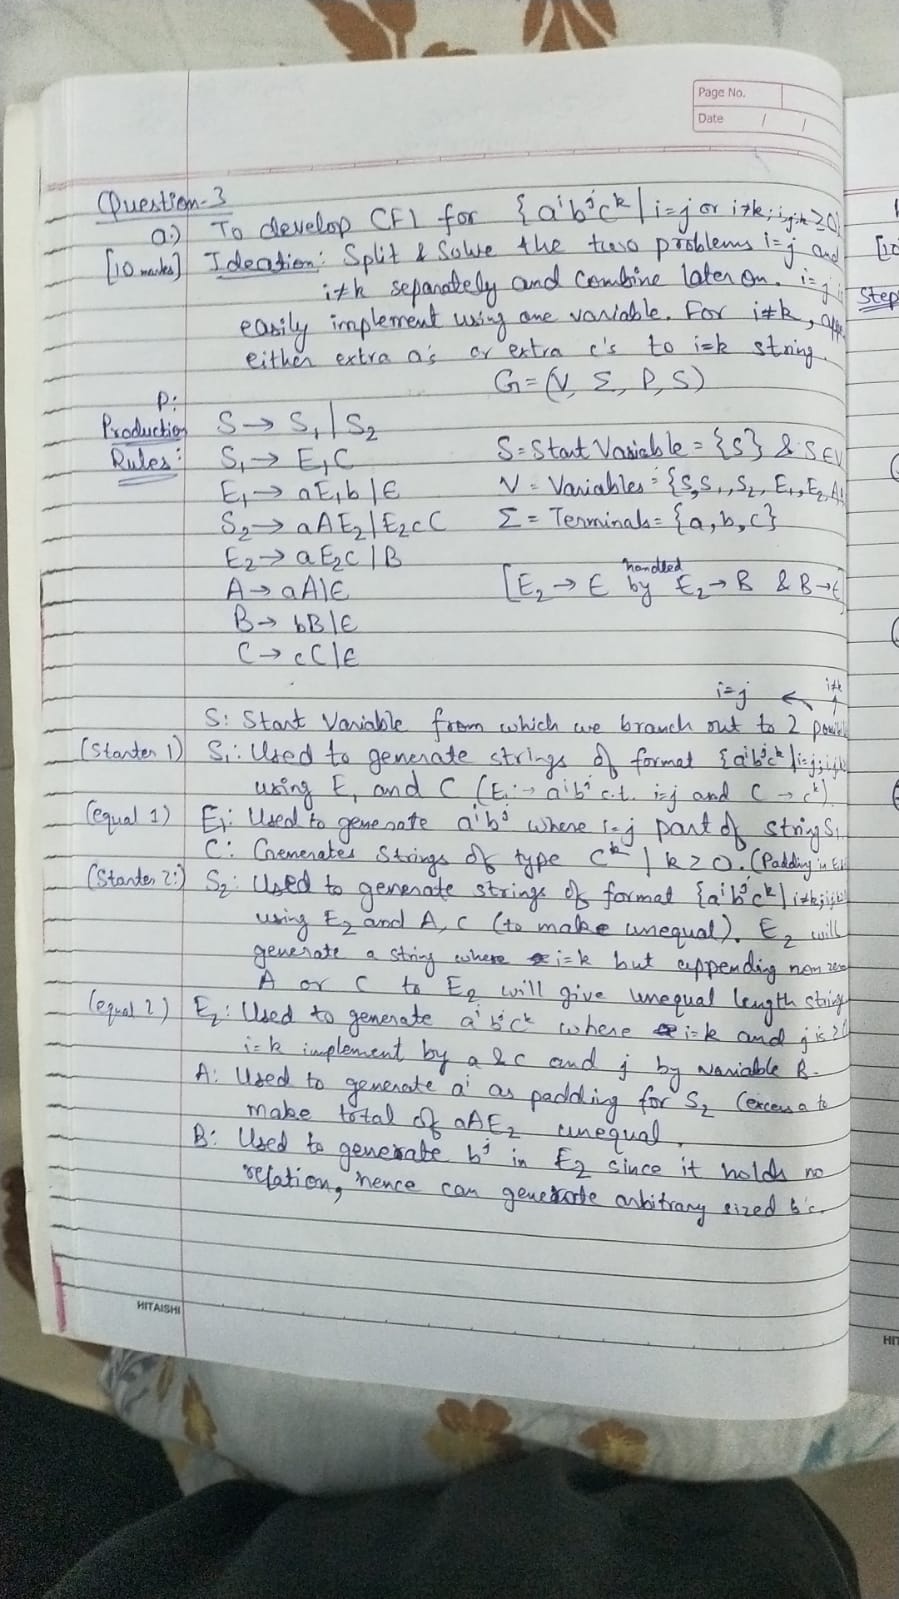 Page No.
Date / /
Question-3
a.) To develop CFL for {aⁱbʲcᵏ | i=j or i≠k; i,j,k ≥0}
[10 marks] Ideation: Split & Solve the two problems i=j and
i≠k separately and combine later on. i=j is
easily implement using one variable. For i≠k,
either extra a's or extra c's to i=k string.
G=(V, Σ, P, S)
P:
Production Rules:
S→ S₁|S₂
S=Start Variable = {S} & S∈V
S₁→ E₁C
V = Variables = {S,S₁,S₂,E₁,E₂,A
E₁→ aE₁b|ε
S₂→ aAE₂|E₂cC
Σ = Terminals= {a,b,c}
E₂→ aE₂c|B
A→ aA|ε
[E₂→ε handled by E₂→B & B→ε]
B→ bB|ε
C→ cC|ε
i=j ← i≠k ↑
S: Start Variable from which we branch out to 2
(Starter 1) S₁: Used to generate strings of format {aⁱbʲcᵏ|i=j;i,j,k
using E₁ and C (E₁→aⁱbʲ s.t. i=j and C→cᵏ)
(equal 1) E₁: Used to generate aⁱbʲ where i=j part of string S₁
C: Generates Strings of type cᵏ | k≥0. (Padding in
(Starter 2:) S₂: Used to generate strings of format {aⁱbʲcᵏ|i≠k;i,j,k
using E₂ and A, C (to make unequal). E₂ will
generate a string where i=k but appending non zero
A or C to E₂ will give unequal length string
(equal 2) E₂: Used to generate aⁱbʲcᵏ where i=k and j is ≥0
i=k implement by a & c and j by variable B.
A: Used to generate aⁱ as padding for S₂ (excess a to
make total of aAE₂ unequal.
B: Used to generate bʲ in E₂ since it holds no
relation, hence can generate arbitrary sized b's.
HITAISHI
[10
Step
HIT